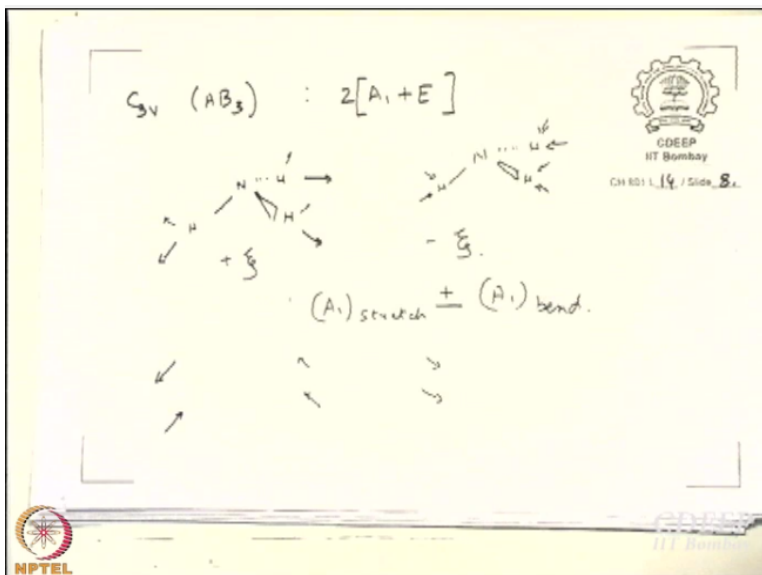 C3v (AB3) : 2[A1 + E]
CDEEP
IIT Bombay
CH 801 L 14 / Slide 8.
N H H H
N H H H
+ ξ
- ξ.
(A1) stretch ± (A1) bend.
CDEEP
IIT Bombay
NPTEL